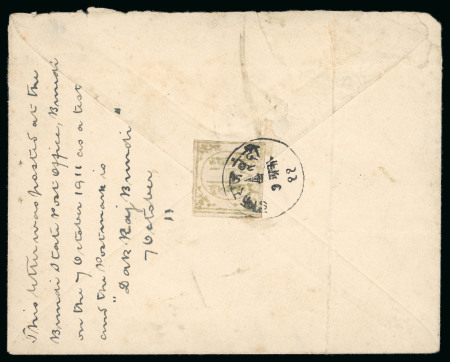 This letter was posted at the
Bundi State Post Office, Bundi
on the 7 October 1911 as a test
and the Postmark is
"Dak. Raj Bundi"
7 October,
11